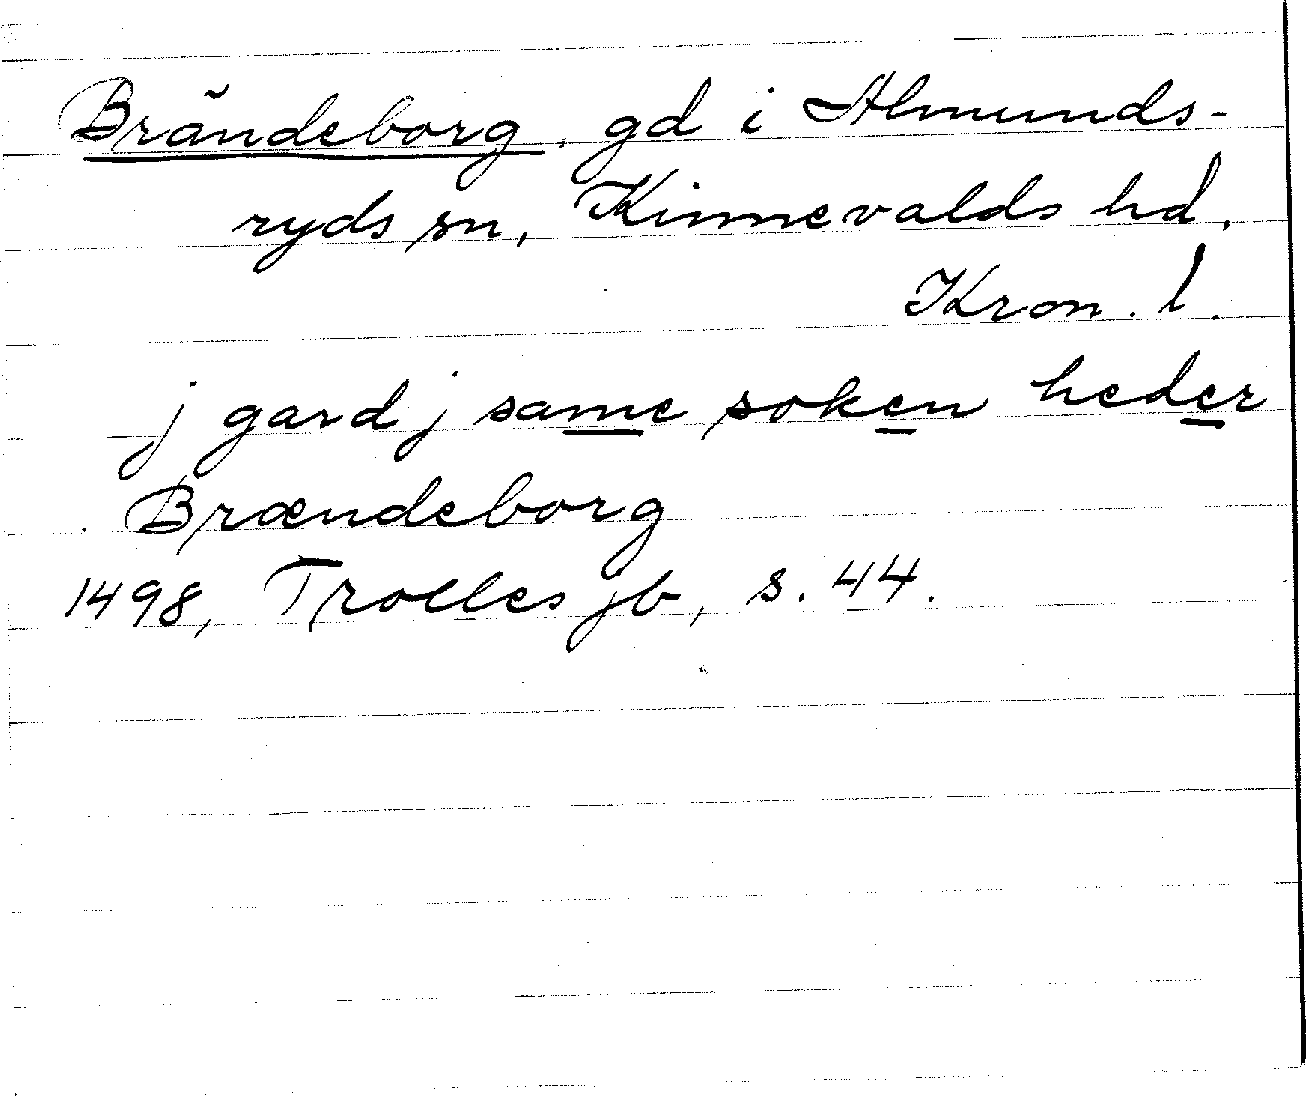 Brändeborg, gd i Almunds-
ryds sn, Kinnevalds hd,
Kron. l.
j gard j same soken heder
Brændeborg
1498, Trolles jb, s. 44.